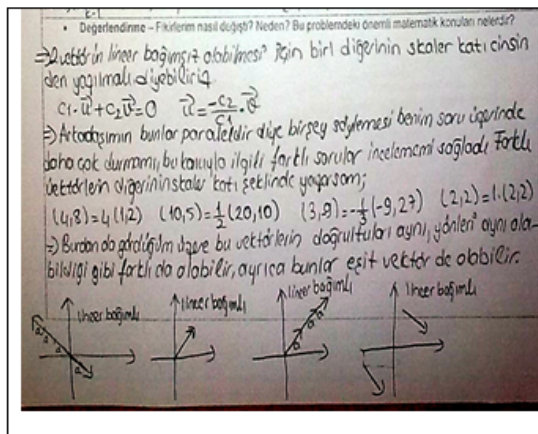 • Değerlendirme – Fikirlerim nasıl değişti? Neden? Bu problemdeki önemli matematik konuları nelerdir?
⇒ 2 vektörün lineer bağımsız olabilmesi için biri diğerinin skaler katı cinsin
den yazılmalı diyebiliriz
c₁·u⃗+c₂v⃗=0 u⃗=-c₂/c₁·v⃗
⇒ Arkadaşımın bunlar paraleldir diye birşey söylemesi benim soru üzerinde
daha çok durmamı, bu konuyla ilgili farklı sorular incelememi sağladı. Farklı
vektörlerin diğerinin skaler katı şeklinde yazarsam;
(4,8)=4(1,2) (10,5)=1/2(20,10) (3,9)=-1/3(-9,27) (2,2)=1·(2,2)
⇒ Burdan da gördüğüm üzere bu vektörlerin doğrultuları aynı, yönleri aynı ola-
bildiği gibi farklı da olabilir, ayrıca bunlar eşit vektör de olabilir.
lineer bağımlı lineer bağımlı lineer bağımlı lineer bağımlı